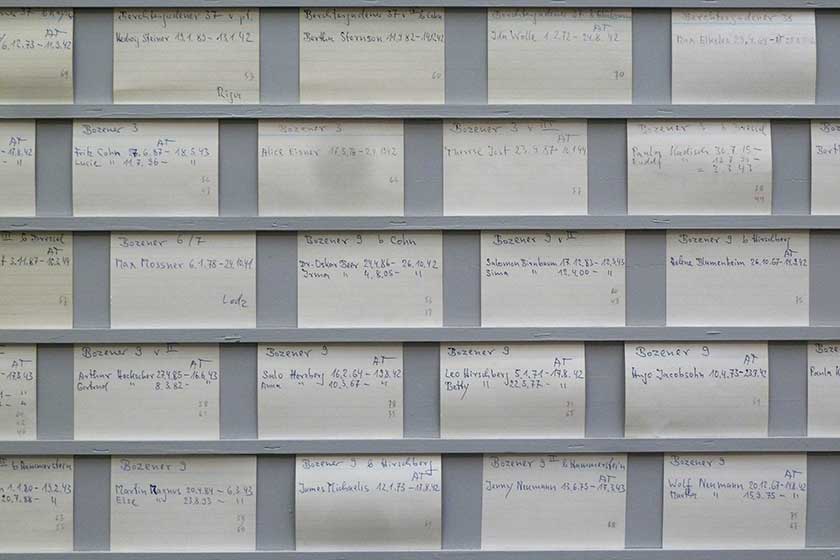 6.12.73 - 11.9.42
69
Berchtesgadener 37 v pt.
Hedwig Steiner 19.1.89 - 13.1.42
53
Riga
Berchtesgadener 37 v II b Cohn
Bertha Sternson 11.9.82 -
60
Berchtesgadener 37
AT
Ida Wolle 1.2.72 - 24.8.42
70
Berchtesgadener 38
AT
- 17.8.42
Bozener 3
AT
Fritz Cohn 7.6.87 - 18.5.43
Lucie " 11.7.96 - "
56
47
Bozener 3
AT
Alice Eisner
66
Bozener 3 v III
AT
Therese Jost 23.9.87 -
57
Bozener
Paula 30.7.15 -
Rudolf "
= 2.3.43
28
49
Berth
II b Dressel
AT
3.11.87 -
Bozener 6/7
Max Mossner 6.1.78 - 24.10.41
Lodz
Bozener 9 b Cohn
Dr. Oskar Beer 24.4.86 - 26.10.42
Irma " 4.8.05 - "
56
37
Bozener 9 v II
Salomon Birnbaum 17.12.83 - 12.3.43
Sima " 12.4.00 - "
60
43
Bozener 9 b Hirschberg
AT
Helene Blumenheim 26.10.67 - 14.9.42
75
AT
- 17.8.43
Bozener 9 v II
AT
Arthur Heckscher 27.4.85 - 16.6.43
Gertrud " 8.3.82 - "
58
61
Bozener 9
AT
Salo Herzberg 16.2.64 - 19.8.42
Anna " 10.3.67 - "
78
75
Bozener 9
AT
Leo Hirschberg 5.1.71 - 17.8.42
Betty " 22.5.77 - "
71
65
Bozener 9
AT
Hugo Jacobsohn 10.4.73 -
69
Paula
II b Hammerstein
AT
1.1.80 - 19.2.43
20.7.88 - "
63
55
Bozener 9
Martin Magnus 20.4.84 - 6.3.43
Else " 23.8.93 - "
59
50
Bozener 9 b Hirschberg
AT
James Michaelis 12.1.73 - 17.8.42
69
Bozener 9 II b Hammerstein
AT
Jenny Neumann 13.6.75 - 17.3.43
68
Bozener 9
AT
Wolf Neumann 20.12.67 - 17.8.42
Martha " 15.9.75 - "
75
67